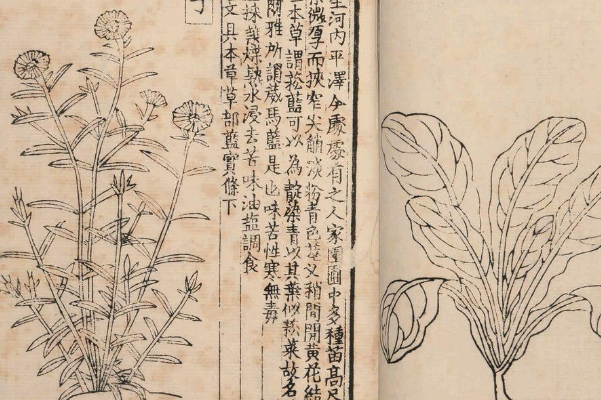 生河内平澤今處處有之人家園圃中多種苗高尺
微厚而狹窄尖淡粉青色莖叉稍間開黃花結
本草謂菘藍可以為靛染青以其葉似菘菜故名
爾雅所謂葴馬藍是也味苦性寒無毒
採葉煠熟水浸去苦味油鹽調食
文具本草草部藍實條下